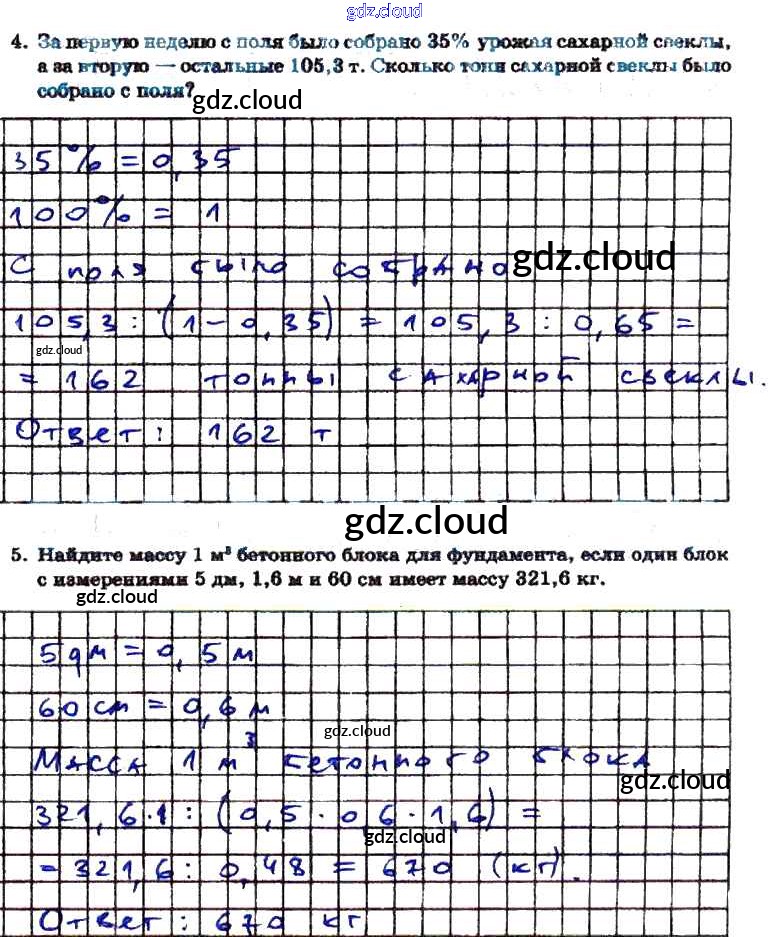 gdz.cloud
4. За первую неделю с поля было собрано 35% урожая сахарной свеклы,
а за вторую — остальные 105,3 т. Сколько тонн сахарной свеклы было
собрано с поля?
gdz.cloud
35% = 0,35
100% = 1
С поля было собрано
gdz.cloud
105,3 : (1 - 0,35) = 105,3 : 0,65 =
gdz.cloud
= 162 тонны сахарной свеклы.
Ответ: 162 т
gdz.cloud
5. Найдите массу 1 м³ бетонного блока для фундамента, если один блок
с измерениями 5 дм, 1,6 м и 60 см имеет массу 321,6 кг.
gdz.cloud
5дм = 0,5 м
60 см = 0,6 м
gdz.cloud
Масса 1 м³ бетонного блока
gdz.cloud
321,6·1 : (0,5 · 0,6 · 1,6) =
gdz.cloud
= 321,6 : 0,48 = 670 (кг).
Ответ: 670 кг